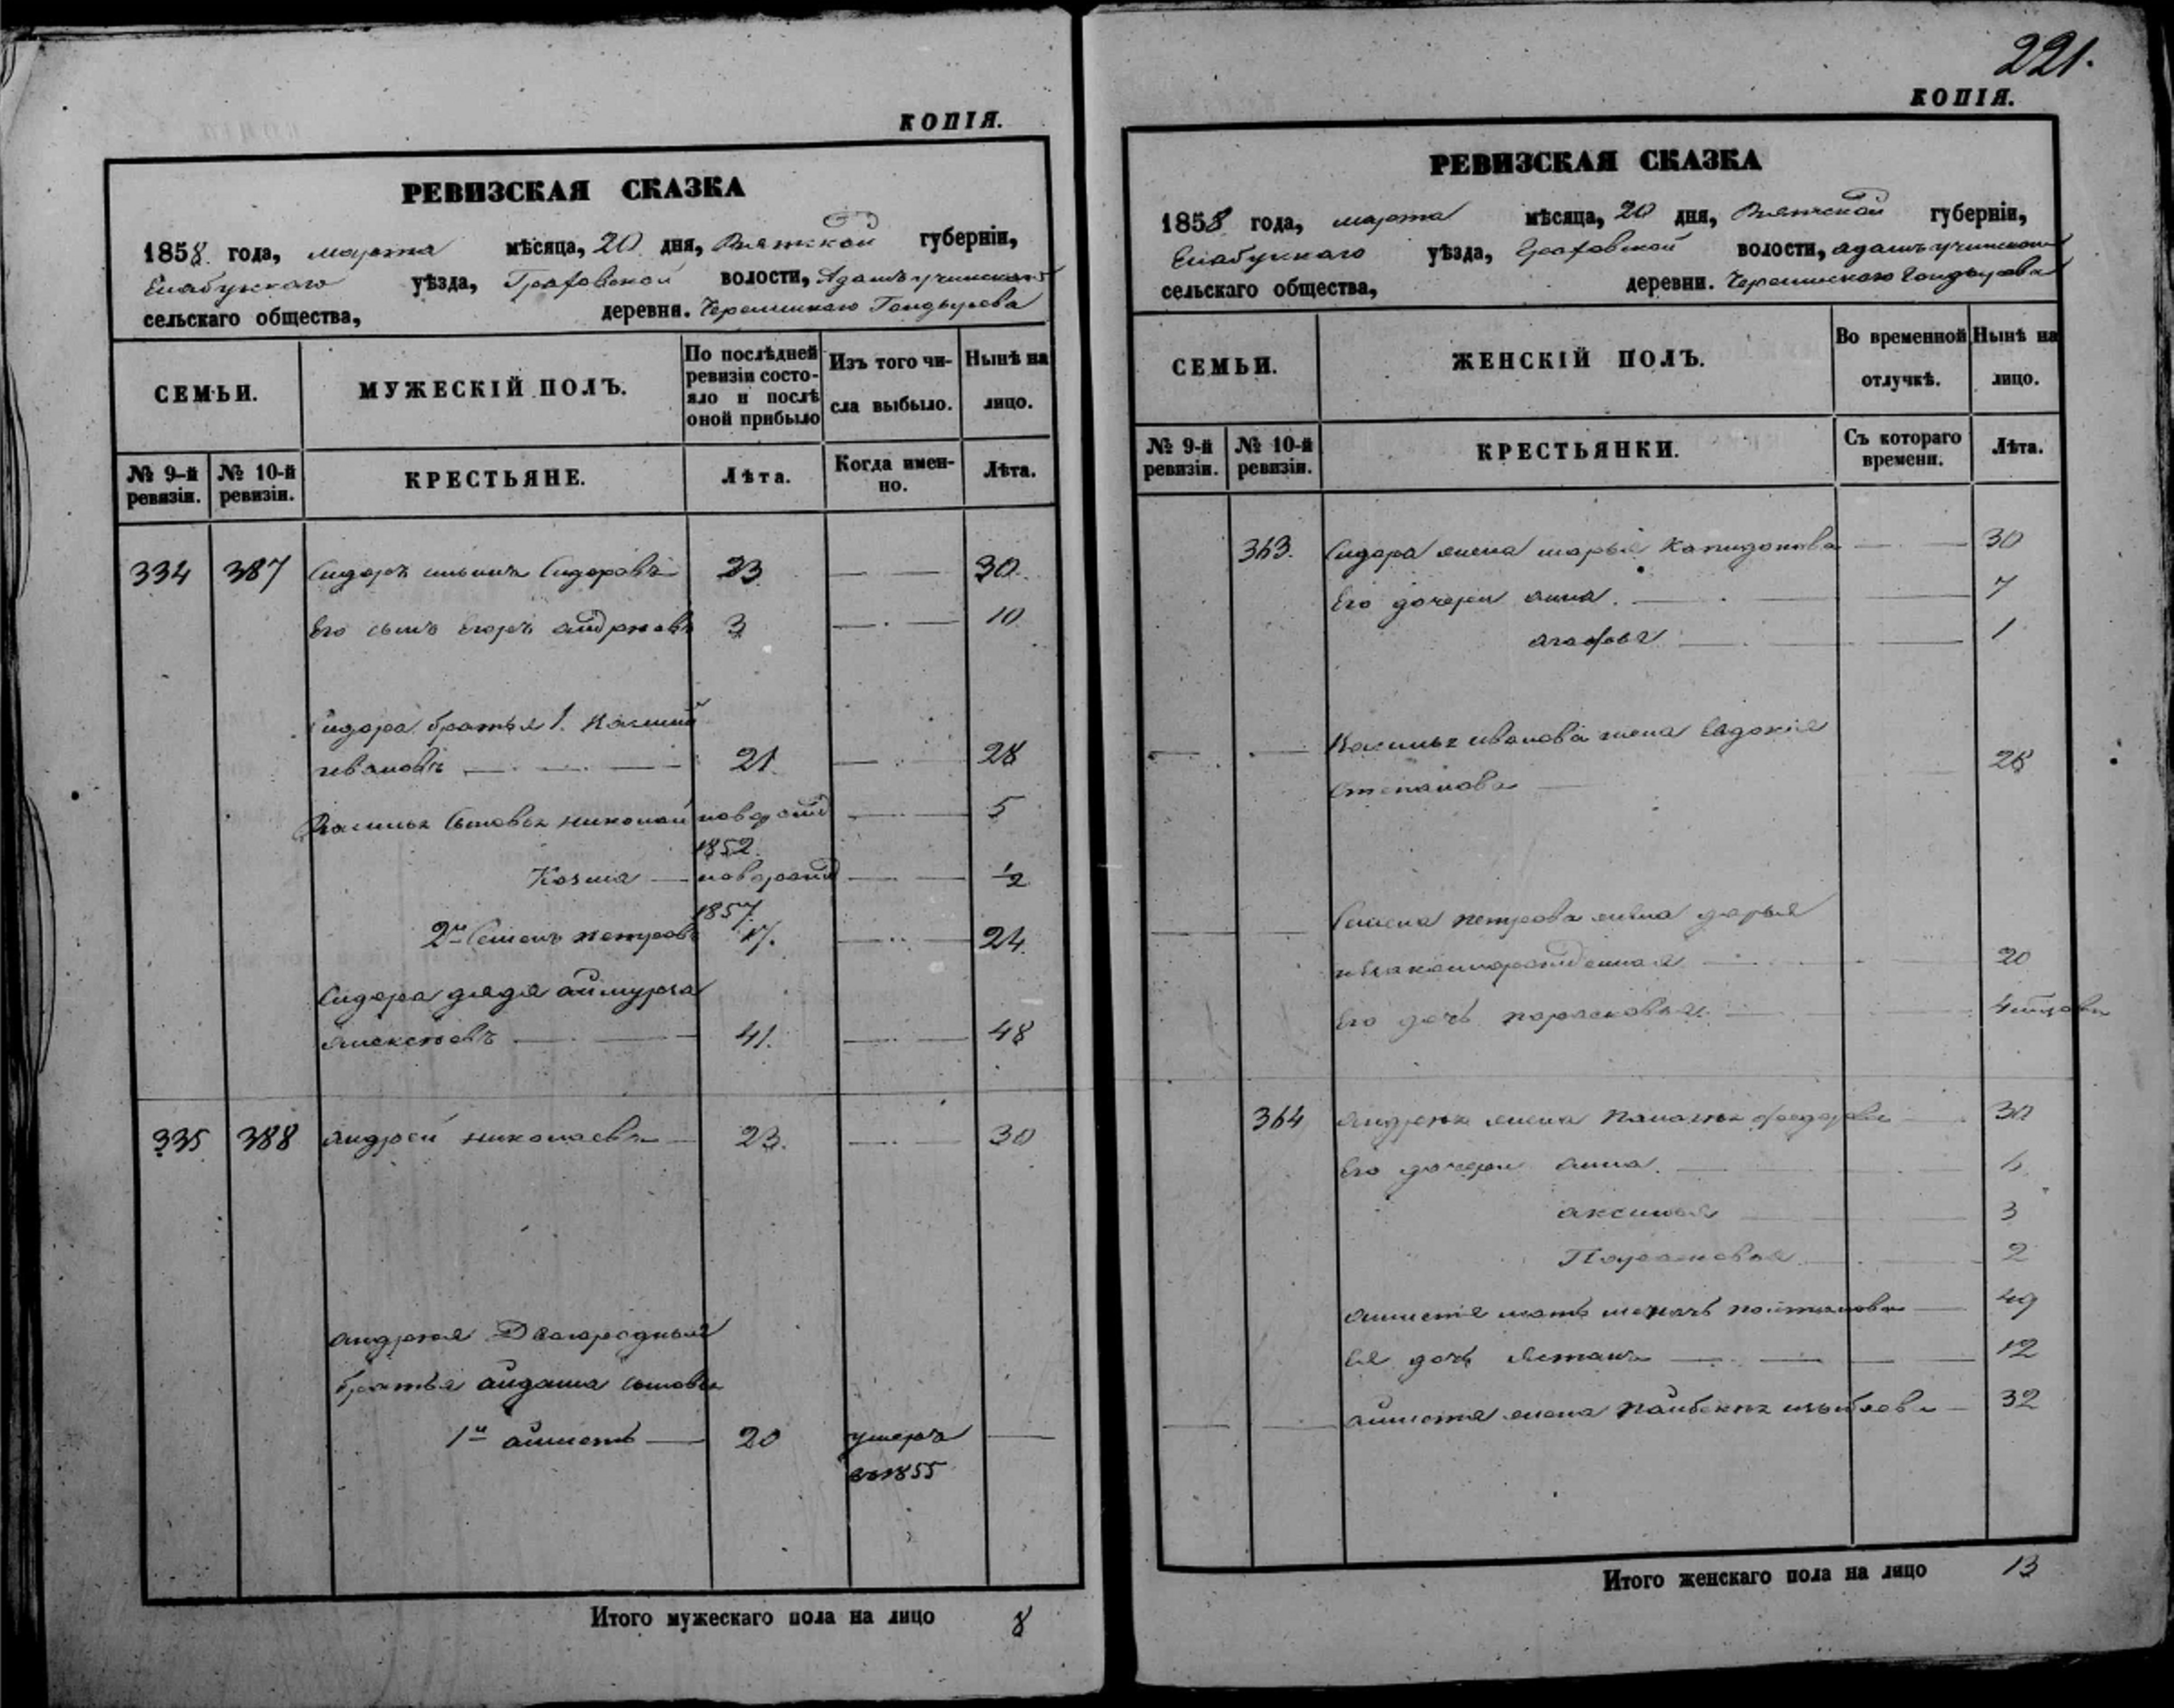 КОПІЯ.
РЕВИЗСКАЯ СКАЗКА
1858. года, марта мѣсяца, 20 дня, Вятской губерніи,
Елабужскаго уѣзда, Граховской волости,
сельскаго общества, деревни.
СЕМЬИ.
МУЖЕСКІЙ ПОЛЪ.
По послѣдней ревизіи состо-
яло и послѣ оной прибыло
Изъ того чи-
сла выбыло.
Нынѣ на
лицо.
№ 9-й ревизіи.
№ 10-й ревизіи.
КРЕСТЬЯНЕ.
Лѣта.
Когда имен-
но.
Лѣта.
334 387 Сидоръ Сидоровъ 23 30.
Его сынъ Егоръ 3 10
Сидора братья 1. Василій
Ивановъ 21. 28
Василья сыновья Николай новорожд 5
1852.
Козма новорожд 1/2
1857.
2й Семенъ Петровъ 17. 24
Сидора дядя
41. 48
335 388 Андрей Николаевъ 23. 30
Андрея Двоюродныя
братья сыновья
1й 20 умеръ
въ 1855
Итого мужескаго пола на лицо 8
221.
КОПІЯ.
РЕВИЗСКАЯ СКАЗКА
1858 года, марта мѣсяца, 20 дня, Вятской губерніи,
Елабужскаго уѣзда, Граховской волости,
сельскаго общества, деревни.
СЕМЬИ.
ЖЕНСКІЙ ПОЛЪ.
Во временной
отлучкѣ.
Нынѣ на
лицо.
№ 9-й ревизіи.
№ 10-й ревизіи.
КРЕСТЬЯНКИ.
Съ котораго
времени.
Лѣта.
363. Сидора жена Марья 30
Его дочери Анна. 7
Агафья 1
Василья Иванова жена Евдокія
Степанова 28
Семена Петрова жена Дарья
20
Его дочь Парасковья
364 Андрея жена Федорова 30
Его дочери Анна.
Аксинья 3
Парасковья 2
мать 49
Ея дочь 12
жена 32
Итого женскаго пола на лицо 13